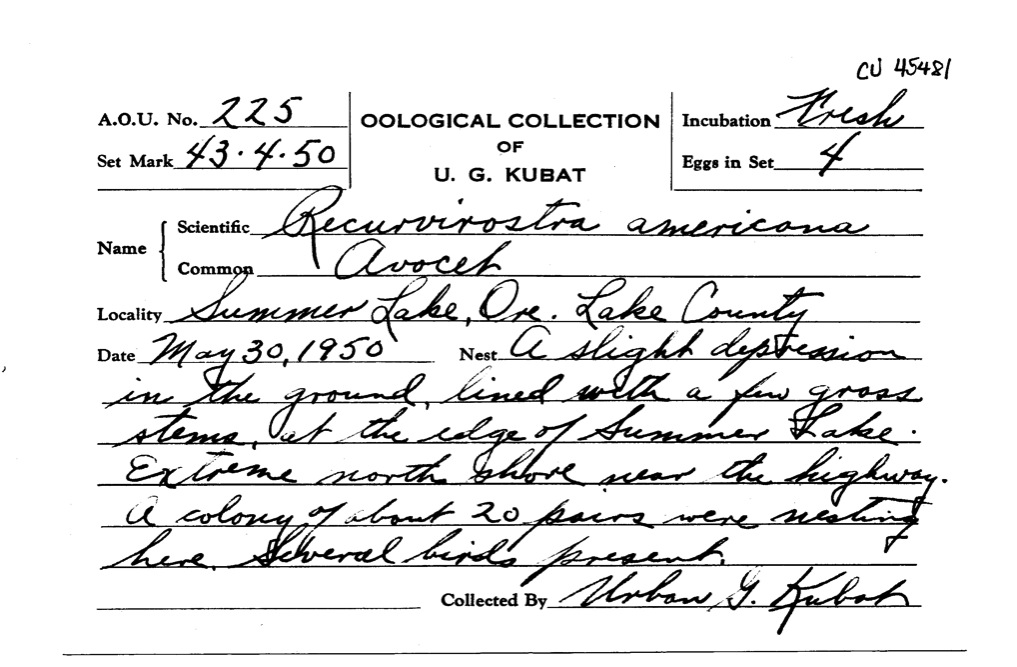 CU 45481
A.O.U. No. 225
Set Mark 43.4.50
OOLOGICAL COLLECTION
OF
U. G. KUBAT
Incubation Fresh
Eggs in Set 4
Name
Scientific Recurvirostra americana
Common Avocet
Locality Summer Lake, Ore. Lake County
Date May 30, 1950 Nest A slight depression
in the ground, lined with a few grass
stems, at the edge of Summer Lake.
Extreme north shore near the highway.
A colony of about 20 pairs were nesting
here. Several birds present.
Collected By Urban G. Kubat